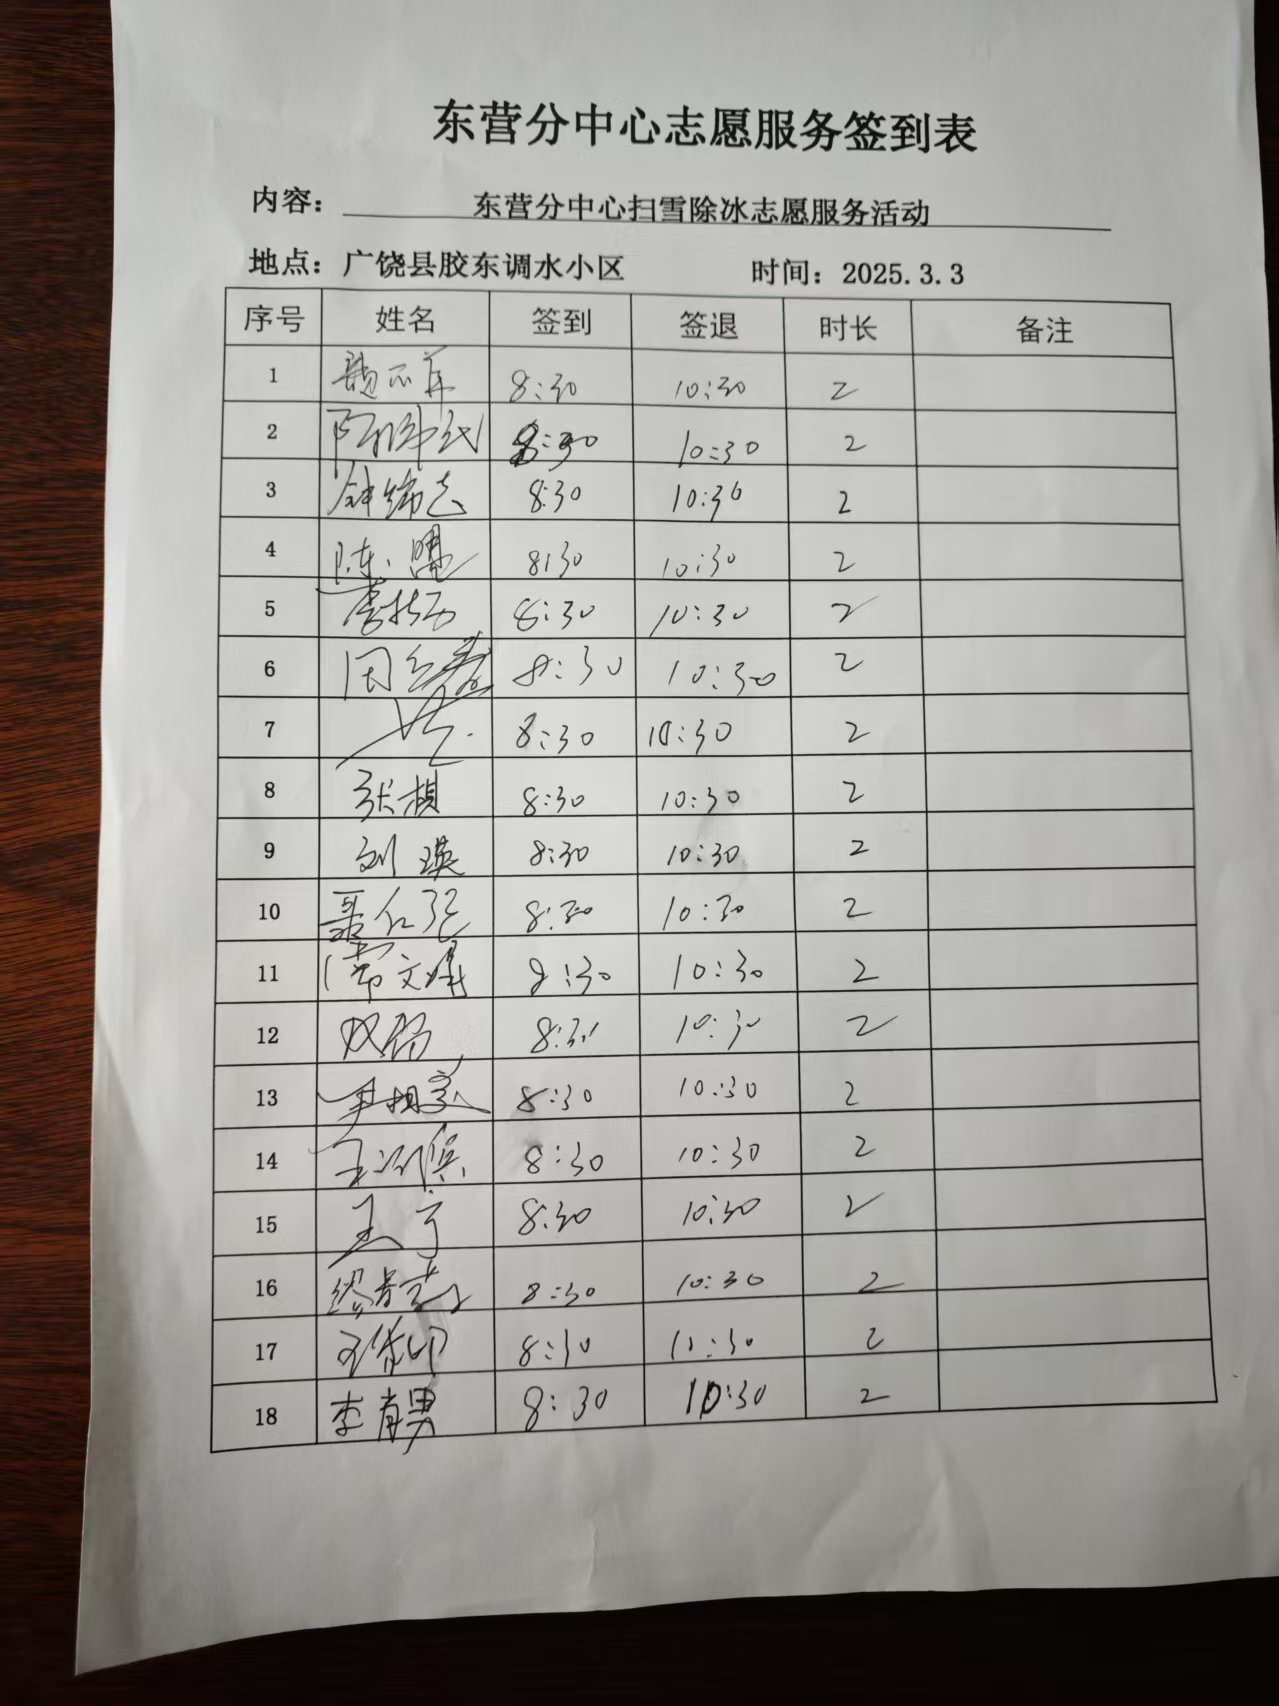 东营分中心志愿服务签到表
内容： 东营分中心扫雪除冰志愿服务活动
地点：广饶县胶东调水小区 时间：2025.3.3
序号 姓名 签到 签退 时长 备注
1 8:30 10:30 2
2 8:30 10:30 2
3 8:30 10:30 2
4 陈 8:30 10:30 2
5 李 8:30 10:30 2
6 8:30 10:30 2
7 8:30 10:30 2
8 张桢 8:30 10:30 2
9 刘瑛 8:30 10:30 2
10 8:30 10:30 2
11 常文 8:30 10:30 2
12 8:30 10:30 2
13 尹相 8:30 10:30 2
14 王 8:30 10:30 2
15 王宁 8:30 10:30 2
16 8:30 10:30 2
17 8:30 10:30 2
18 李肖男 8:30 10:30 2